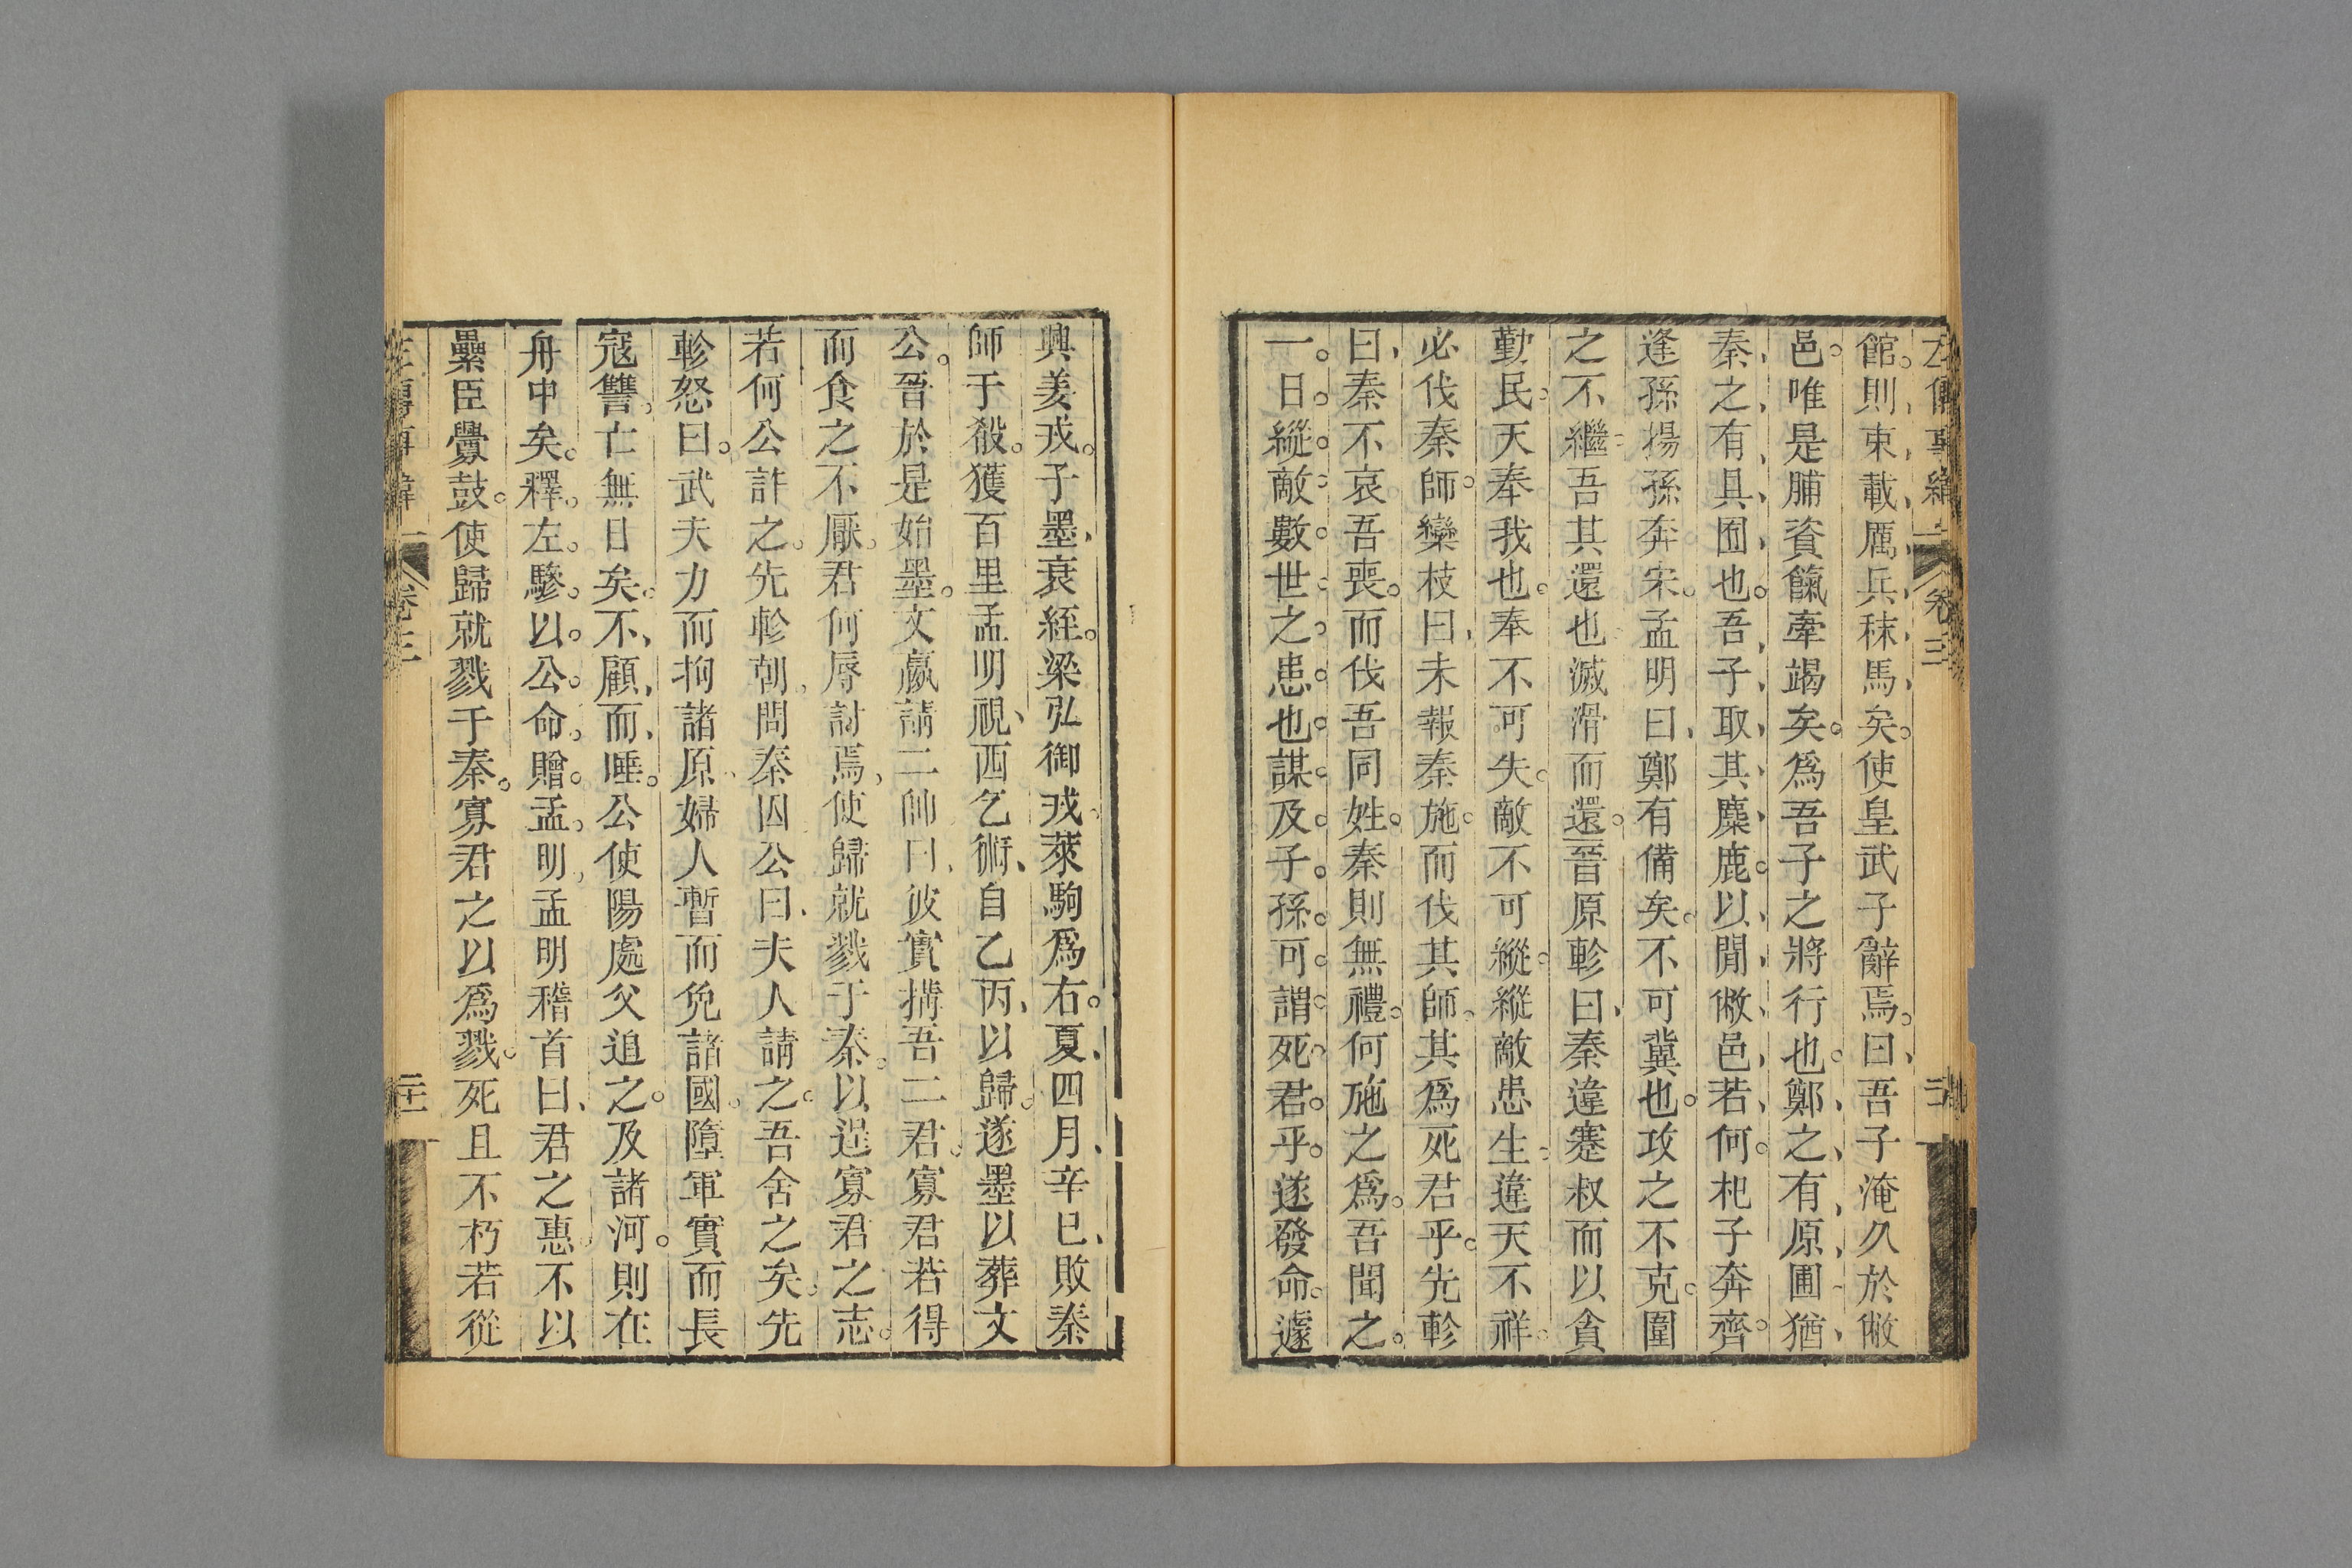 館則束載厲兵秣馬矣使皇武子辭焉曰吾子淹久於敝
邑唯是脯資餼牽竭矣爲吾子之將行也鄭之有原圃猶
秦之有具囿也吾子取其麋鹿以閒敝邑若何杞子奔齊
逢孫揚孫奔宋孟明曰鄭有備矣不可冀也攻之不克圍
之不繼吾其還也滅滑而還晉原軫曰秦違蹇叔而以貪
勤民天奉我也奉不可失敵不可縱縱敵患生違天不祥
必伐秦師欒枝曰未報秦施而伐其師其爲死君乎先軫
曰秦不哀吾喪而伐吾同姓秦則無禮何施之爲吾聞之
一日縱敵數世之患也謀及子孫可謂死君乎遂發命遽
興姜戎子墨衰絰梁弘御戎萊駒爲右夏四月辛巳敗秦
師于殽獲百里孟明視西乞術白乙丙以歸遂墨以葬文
公晉於是始墨文嬴請二帥曰彼實搆吾二君寡君若得
而食之不厭君何辱討焉使歸就戮于秦以逞寡君之志
若何公許之先軫朝問秦囚公曰夫人請之吾舍之矣先
軫怒曰武夫力而拘諸原婦人暫而免諸國隳軍實而長
寇讐亡無日矣不顧而唾公使陽處父追之及諸河則在
舟中矣釋左驂以公命贈孟明孟明稽首曰君之惠不以
纍臣釁鼓使歸就戮于秦寡君之以爲戮死且不朽若從
卷三